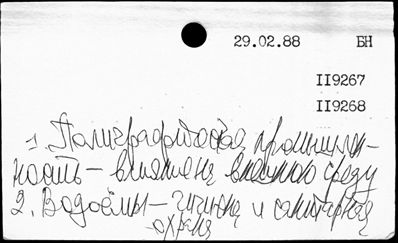 29.02.88 БН
II9267
II9268
1. Полиграфическая промышлен-
ность – влияние на внешнюю среду
2. Водоёмы – гигиена и санитарная
охрана